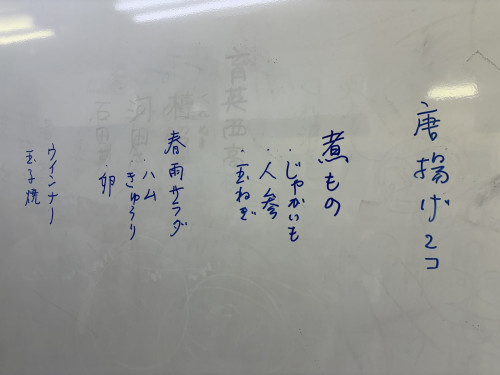 唐揚げ2コ
煮もの
・じゃがいも
・人参
・玉ねぎ
春雨サラダ
・ハム
きゅうり
・卵
ウインナー
玉子焼